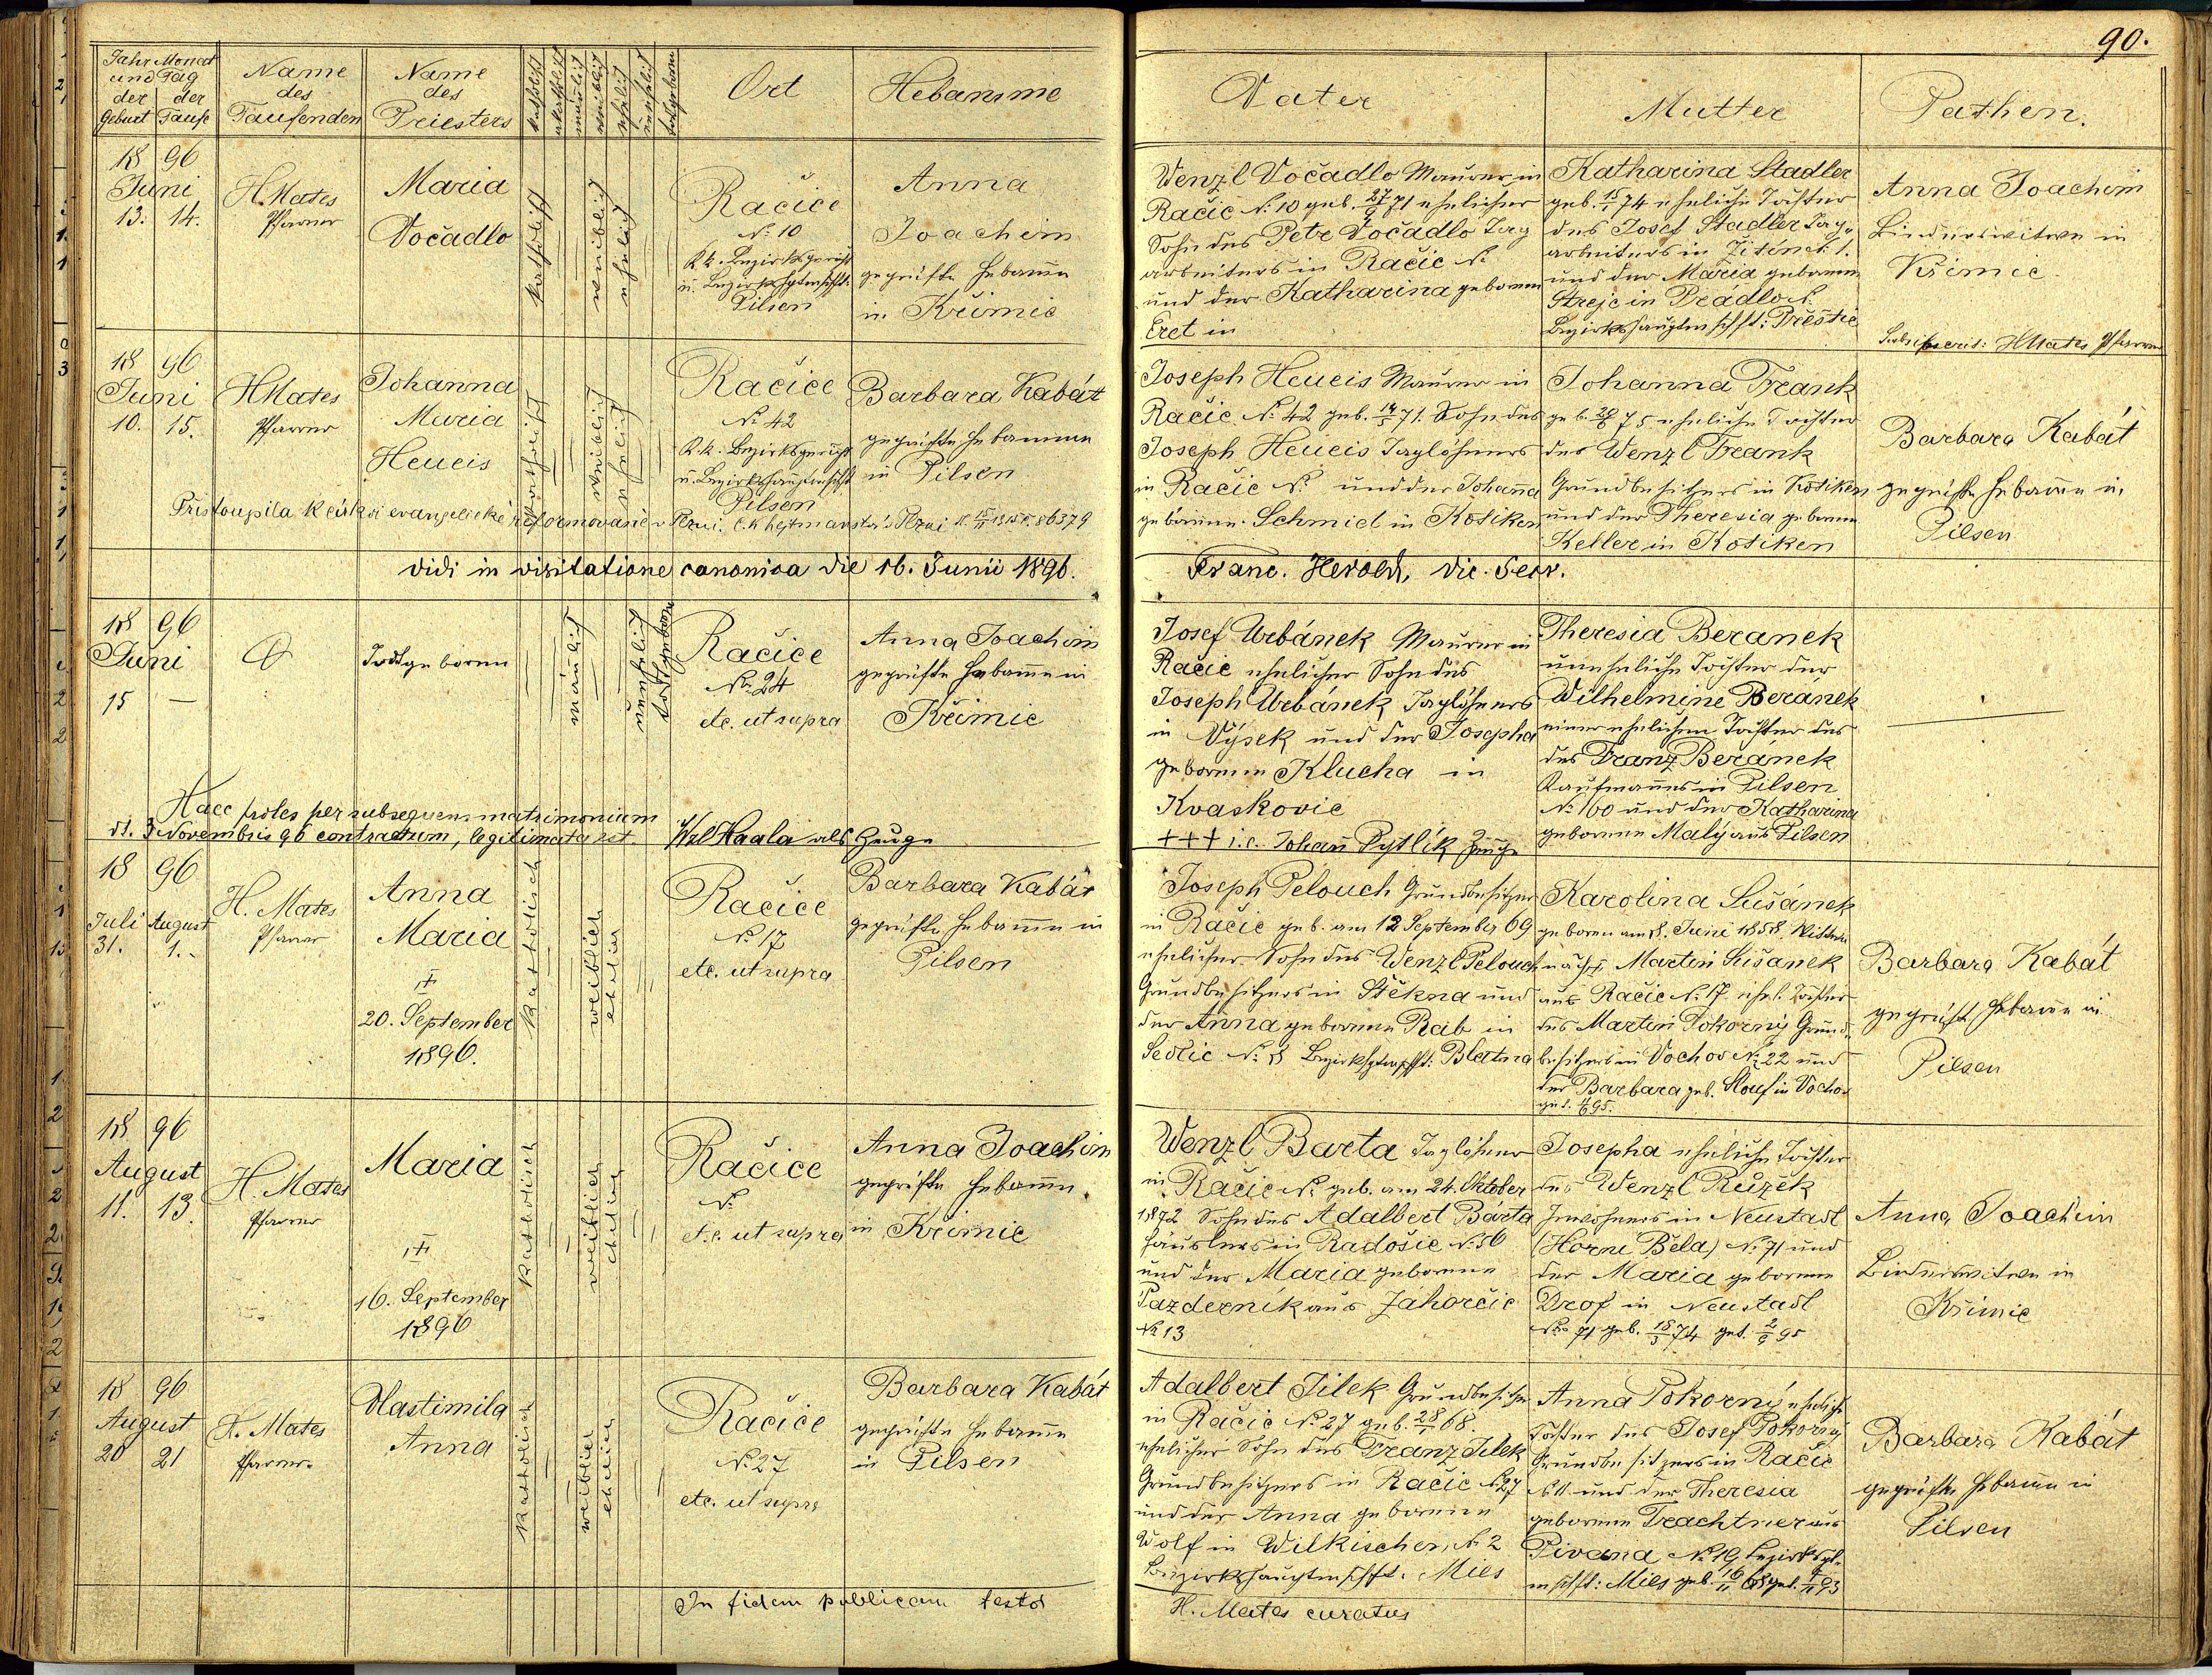 90.
Jahr Monat
und Tag
der der
Geburt Taufe
Name
des
Taufenden
Name
des
Priesters
katholisch
akatholisch
männlich
weiblich
ehelich
unehelich
todtgeboren
Ort
Hebamme
Vater
Mutter
Pathen.
18 96
Juni
13. 14.
H. Mates
Pfarrer
Maria
Vočadlo
katholisch
weiblich
ehelich
Račice
N: 10
K.k. Bezirksgericht
u. Bezirkshptmschft:
Pilsen
Anna
Joachim
geprüfte Hebame
in Křimic
Wenzl Vočadlo Maurer in
Račic N: 10 geb. 27/9 71 ehelicher
Sohn des Petr Vočadlo Tag
arbeiters in Račic N:
und der Katharina geborenen
Eret in
Katharina Stadler
geb. 15/1 74 eheliche Tochter
des Josef Stadler Tag-
arbeiters in Žitín N: 1.
und der Maria geborenen
Strejc in Prádlo N.
Bezirkshauptmschft: Přestic
Anna Joachim
Binderswitwe in
Křimic
Subscripserit: H Mates Pfarrer
18 96
Juni
10. 15.
H Mates
Pfarrer
Johanna
Maria
Heueis
katholisch
weiblich
ehelich
Račice
N: 42
K.k. Bezirksgericht
u. Bezirkshauptmschft
Pilsen
Barbara Kabát
geprüfte Hebamme
in Pilsen
Joseph Heueis Maurer in
Račic N: 42 geb. 14/5 71. Sohn des
Joseph Heueis Taglöhners
in Račic N: und der Johanna
geborene Schmid in Kotiken
Johanna Frank
geb. 20/6 75 eheliche Tochter
des Wenzl Frank
Grundbesitzers in Kotiken
und der Theresia geborene
Keller in Kotiken
Barbara Kabát
geprüfte Hebame in
Pilsen
Přistoupila k církvi evangelické reformované v Plzni. C.k. hejtmanství v Plzni
Vidi in visitatione canonica die 16. Junii 1896.
Franc. Herold, vic. Secr.
18 96
Juni
15 —
Todtgeboren
mänlich
unehelich
todtgeboren
Račice
No. 24
etc. ut supra
Anna Joachim
geprüfte Hebame in
Křimic
Josef Urbánek Maurer in
Račic ehelicher Sohn des
Joseph Urbánek Taglöhners
in Výsek und der Josepha
geborene Klucha in
Kvaskovic
+++ i.e. Johann Pytlík Zeuge
Theresia Beranek
uneheliche Tochter der
Wilhelmine Beránek
einer ehelichen Tochter des
des Franz Beránek
Kaufmannes in Pilsen
N: 160 und der Katharina
geborene Malý aus Pilsen
Haec proles per subsequens matrimonium
dt. 3 Novembris 96 contractum, legitimata est.
Wzl Haala als Zeuge
18 96
Juli August
31. 1.
H. Mates
Pfarrer
Anna
Maria
+
20. September
1896.
katholisch
weiblich
ehelich
Račice
N: 17
etc. ut supra
Barbara Kabát
geprüfte Hebame in
Pilsen
Joseph Pelouch Grundbesitzer
in Račic geb. am 12 September 69
ehelicher Sohn des Wenzl Pelouch
Grundbesitzers in Štěkna und
der Anna geborene Rab in
Sedlic N: 8 Bezirkshptmschft: Blatna
Karolina Sušánek
geboren am 8. Juni 1858. Witwe
nach + Martin Sušánek
aus Račic N: 17 ehel. Tochter
des Martin Pokorný Grund-
besitzers in Vochov N: 22 und
der Barbara geb. Slouf in Vochov
Barbara Kabát
geprüft Hebame in
Pilsen
18 96
August
11. 13.
H. Mates
Pfarrer
Maria
+
16. September
1896
katholisch
weiblich
ehelich
Račice
N:
etc. ut supra
Anna Joachim
geprüfte Hebame
in Křimic
Wenzl Barta Taglöhner
in Račic N: geb. am 24. Oktober
1872 Sohn des Adalbert Bárta
Häuslers in Radošic N: 56
und der Maria geborene
Pazderník aus Záhorčic
N: 13
Josepha eheliche Tochter
des Wenzl Růžek
Inwohners in Neustadl
(Horní Běla) N: 71 und
der Maria geborene
Drof in Neustadl
No. 71 geb. 18/3 74 get. 2/9 95
Anna Joachim
Binderswitwe in
Křimic
18 96
August
20 21
H. Mates
Pfarrer
Vlastimila
Anna
katholisch
weiblich
ehelich
Račice
N: 27
etc. ut supra
Barbara Kabát
geprüfte Hebame
in Pilsen
Adalbert Jílek Grundbesitzer
in Račic N: 27 geb. 28/1 68.
ehelicher Sohn des Franz Jílek
Grundbesitzers in Račic N 27
und der Anna geborene
Wolf in Wilkischen N: 2
Bezirkshauptmschft: Mies
Anna Pokorný eheliche
Tochter des Josef Pokorný
Grundbesitzers in Račic
N: 11. und der Theresia
geborene Trachtner aus
Pivana N: 19 Bezirkshpt-
mschft: Mies
Barbara Kabát
geprüfte Hebame in
Pilsen
In fidem publicam testor
H. Mates curatus